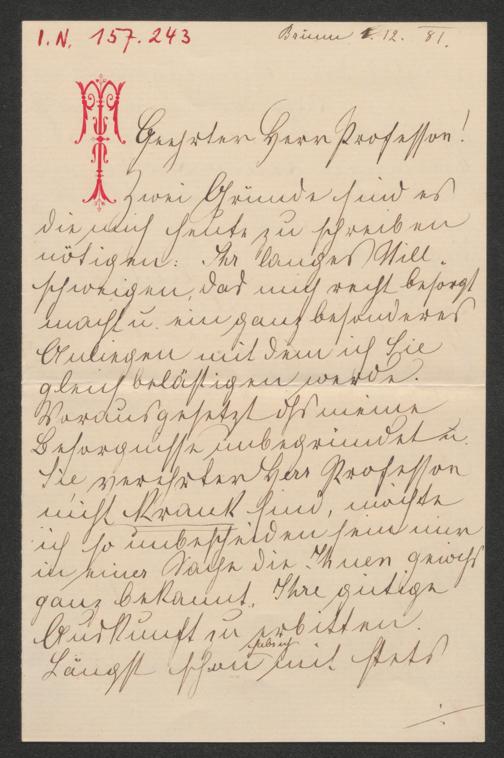 I.N. 157.243
Brünn 12. 81.
Geehrter Herr Professor!
Zwei Gründe sind es
die mich heute zu schreiben
nötigen: Ihr langes Still-
schweigen, das mich recht besorgt
macht u. ein ganz besonderes
Anliegen mit dem ich Sie
gleich belästigen werde.
Vorausgesetzt dß meine
Besorgnisse unbegründet u.
Sie verehrter Herr Professor
nicht krank sind, möchte
ich so unbescheiden sein mir
in einer Sache die Ihnen gewiß
ganz bekannt, Ihre gütige
Auskunft zu erbitten.
habe ich
Längst schon mit stets